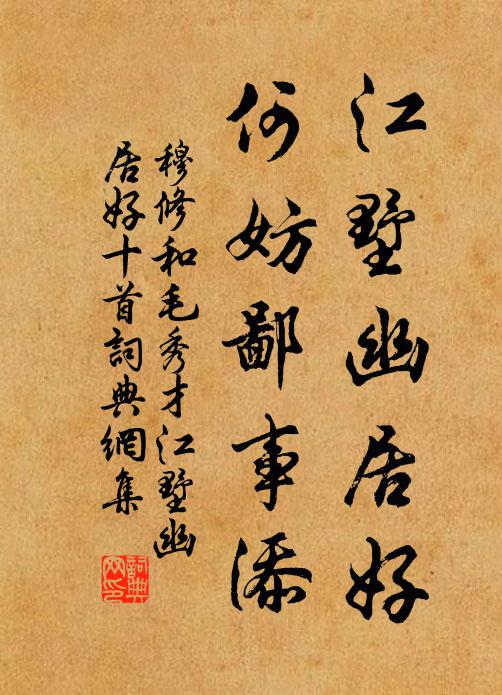 江墅幽居好
何妨鄙事添
穆修和毛秀才江墅幽
居好十首詞典網集
詞典网印